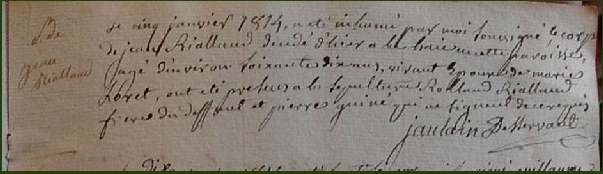 S. de
jean
Rialland
Le cinq janvier 1814, a été inhumé par moi soussigné le corps
de jean Rialland décédé d'hier a la haie en cette paroisse,
agé d'environ soixante dix ans, vivant époux de marie
Loret, ont été présens a la sépulture Rolland Rialland
frere du deffunt et pierre guiné qui ne signent de ce requis
jaulain Desservant